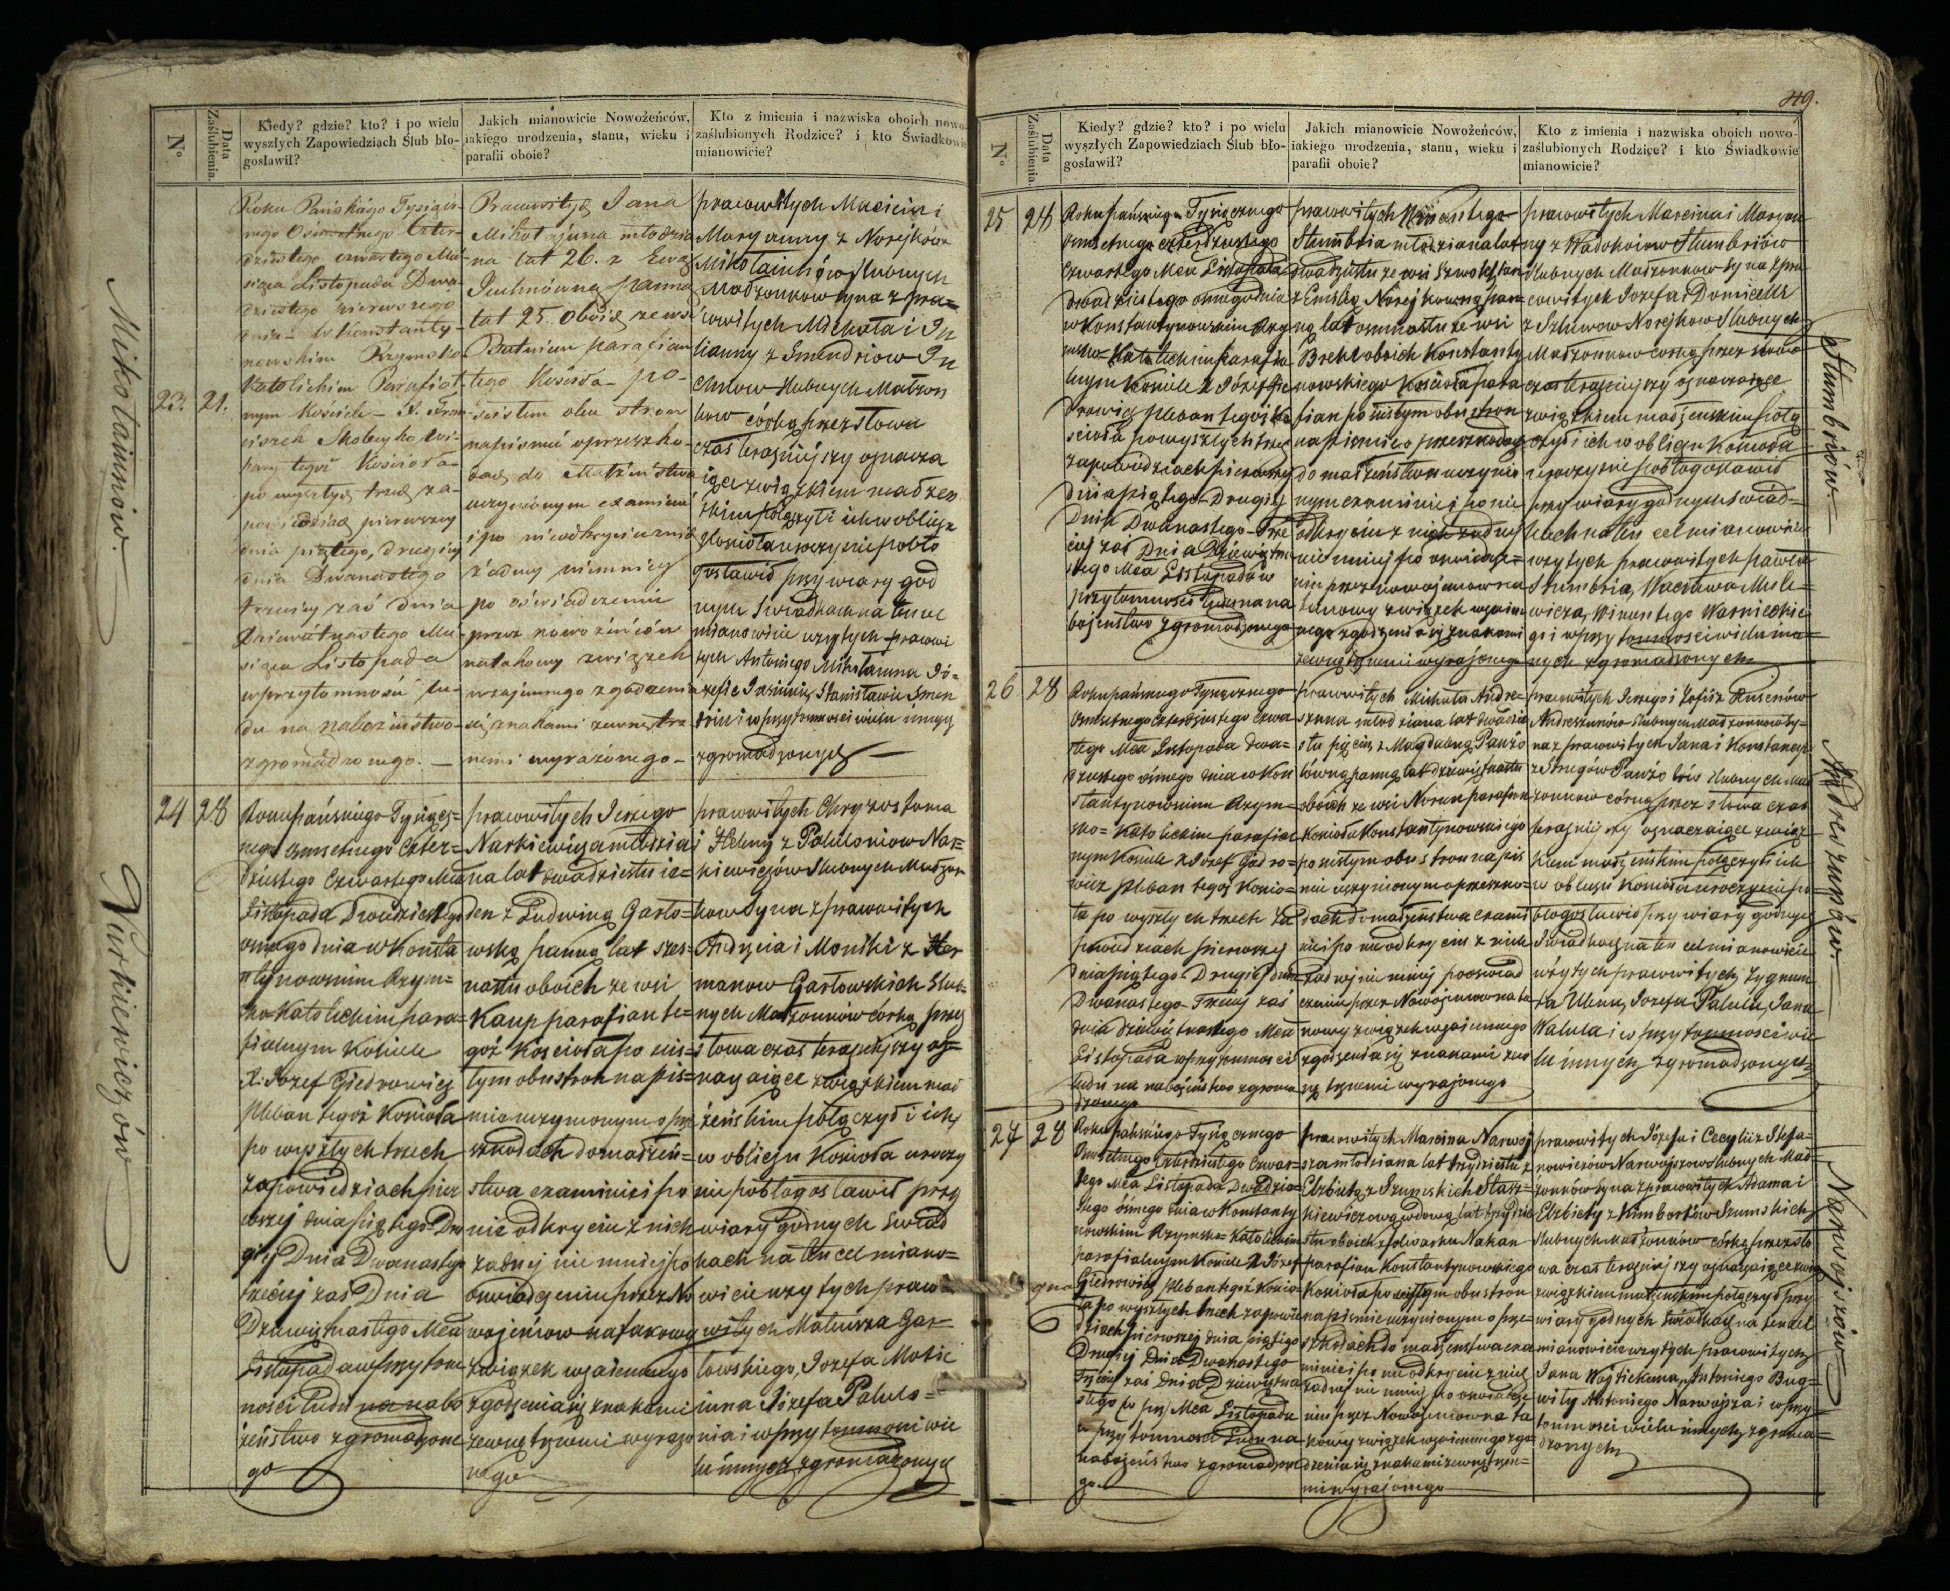 Nº
Data Zaślubienia.
Kiedy? gdzie? kto? i po wielu
wyszłych Zapowiedziach Ślub bło-
gosławił?
Jakich mianowicie Nowożeńców,
iakiego urodzenia, stanu, wieku i
parafii oboie?
Kto z imienia i nazwiska oboich nowo-
zaślubionych Rodzice? i kto Świadkowie
mianowicie?
Mikołainow.
23. 21.
Roku Pańskiego Tysiącz-
nego Osmsetnego Czter-
dziestego czwartego Mie-
siąca Listopada Dwu-
dziestego pierwszego
dnia w Konstanty-
nowskim Rzymsko
Katolickim Parafial-
nym Kościele X. Fran-
ciszek
tegoż Kościoła
po wyszłych trzech za-
powiedziach pierwszey
dnia piątego, drugiey
dnia Dwunastego
trzeciey zaś dnia
Dziewiętnastego Mie-
siąca Listopada
w przytomności lu-
du na nabożeństwo
zgromadzonego.
Pracowitych Jana
młodzia
na lat 26. z Ewą
panną
lat 25. oboie ze wsi
parafian
tego Kościoła po-
obu stron
na piśmie o przeszko-
dach do Małżeństwa
uczynionym examinie
i po nieodkryciu z nich
żadney niemniey
po oświadczeniu
przez nowożeńców
na takowy związek
wzajemnego zgodzenia
się znakami zewnętrz
nemi wyrażonego
pracowitych Macieia i
Maryanny z Norejków
Mikołainów ślubnych
Małżonków syna z pra=
cowitych Michała i Ju
lianny z Smendriow
ślubnych Małżon
ków córką przez słowa
czas teraźniejszy oznacza
iące związkiem małżeń
skim połączył i ich w obliczu
Kościoła uroczyście pobło
gosławił przy wiary god
nych Świadkach na ten cel
mianowicie wziętych pracowi
tych Antoniego Mikołainna Jó-
zefa Stanisława Smen
i w przytomności wielu innych
zgromadzonych
Nurkiewiczów
24 28
Roku pańskiego Tysiącz=
nego osmsetnego Czter=
dziestego Czwartego Mca
Listopada Dwudziestego
osmego dnia w Konsta
ntynowskim Rzym=
sko Katolickim para=
fialnym Kościele
X. Jozef Giedrowicz
Pleban tegoż Kościoła
po wyszłych trzech
zapowiedziach pier
wszej dnia piątego Dru
giej Dnia Dwunastego
trzeciej zaś Dnia
Dziewiętnastego Mca
Listopada w przytom
ności Ludu na nabo
żeństwo zgromadzone
go
pracowitych Jerzego
Nurkiewicza młodzia
na lat dwadziestu ie=
den z Ludwiką Gasło=
wską panną lat szes=
nastu oboich ze wsi
Kaup parafian te=
goż Kościoła po uis=
tym obustron na piś=
mie uczynionym o prze
szkodach do małżeń=
stwa examinie i po
nie odkryciu z nich
żadnej nie mniej po
oświadczeniu przez No
wożeńcow na takowy
związek wzaiemnego
zgodzenia się znakami
zewnętrznemi wyrażo
nego
pracowitych Chryzostoma
i Heleny z Paluloniow Nar=
kiewiczów ślubnych Małżon
kow syna z pracowitych
Andrzeia i Moniki z Her
manow Gasłowskich Ślub=
nych Małżonków córką przez
słowa czas teraźniejszy oz=
naczaiące związkiem mał
żeńskim połączył i ich
w obliczu Kościoła uroczy
ście pobłogosławił przy
wiary godnych Świad
kach na ten cel miano=
wicie wziętych praco=
witych Mateusza Gas=
łowskiego, Jozefa
Józefa Palulo=
nia i w przytomności wie
lu innych zgromadzonych
49.
Nº
Data Zaślubienia.
Kiedy? gdzie? kto? i po wielu
wyszłych Zapowiedziach Ślub bło-
gosławił?
Jakich mianowicie Nowożeńców,
iakiego urodzenia, stanu, wieku i
parafii oboie?
Kto z imienia i nazwiska oboich nowo-
zaślubionych Rodzice? i kto Świadkowie
mianowicie?
25 28
Roku pańskiego Tysiącznego
osmsetnego czterdziestego
Czwartego Mca Listopada
dwudziestego osmego dnia
w Konstantynowskim Rzy
msko=Katolickim Parafial
lnym Kościele X Józef Gie
drowicz Pleban tegoż Ko
ścioła po wyszłych trzech
zapowiedziach pierwszej
dnia piątego Drugiej
Dnia Dwunastego Trze
ciej zaś Dnia Dziewiętna
stego Mca Listopada w
przytomności Ludu na na
bożeństwo zgromadzonego
pracowitych Wincentego
Stumbria młodziana lat
dwadziestu ze wsi
z Emilią Norejkowną pan
ną lat osmnastu ze wsi
oboich Konstanty
nowskiego Kościoła para
fian po uistym obustron
na piśmie o przeszkodach
do małżeństwa uczynio
nym examinie i po nie
odkryciu z nich żadnej
nie mniej po oświadcze=
niu przez nowożeńcow na
takowy związek wzaiem
nego zgodzenia się znakami
zewnętrznemi wyrażonego
pracowitych Marcina i Maryan
ny z Wadokoiow Stumbriów
ślubnych Małżonkow syna z pra
cowitych Jozefa i Domicelli
z Norejkow ślubnych
Małżonkow córką przez słowa
czas teraźniejszy oznaczaiące
związkiem małżeńskim połą
czył i ich w obliczu Kościoła
uroczyście pobłogosławił
przy wiary godnych świad=
kach na ten cel mianowicie
wziętych pracowitych Pawła
Stumbria, Wacława Mile=
wicza, Wincentego
go i w przytomności wielu in=
nych zgromadzonych
Stumbriów.
26 28
Roku pańskiego Tysiącznego
Osmsetnego Czterdziestego Czwa=
rtego Mca Listopada dwu=
dziestego ósmego dnia w Kon
stantynowskim Rzym=
sko=Katolickim parafial
nym Kościele X Józef Giedro=
wicz Pleban tegoż Kościo=
ła po wyszłych trzech za
powiedziach pierwszej
dnia piątego Drugiej dnia
Dwunastego Trzeciej zaś
dnia dziewiętnastego Mca
Listopada w przytomności
ludu na nabożeństwo zgroma
dzonego
pracowitych Michała Andre=
szuna młodziana lat dwódzie
stu pięciu z Magdaleną Pawżo
lówną panną lat dziewiętnastu
oboich ze wsi Norun parafian
Kościoła Konstantynowskiego
po uistym obustron na piś
mie uczynionym o przeszko=
dach do małżeństwa exami
nie i po nie odkryciu z nich
żadnej nie mniej po oświad
czeniu przez Nowożeńcow na ta
kowy związek wzaiemnego
zgodzenia się znakami zew
nętrznemi wyrażonego
pracowitych Jerzego i Zofii z
Andreszunów ślubnych Małżonkow sy=
na z pracowitych Jana i Konstancyi
z Strugów Pawżolów ślubnych Mał
żonkow córką przez słowa czas
teraźniejszy oznaczaiące związ
kiem małżeńskim połączył i ich
w obliczu Kościoła uroczyście po
błogosławił przy wiary godnych
Świadkach na ten cel mianowicie
wziętych pracowitych Zygmun
ta Jozefa Palula, Jana
Walula i w przytomności wie
lu innych zgromadzonych
Andreszunów.
27 28
Roku pańskiego Tysiącznego
Osmsetnego Czterdziestego Czwar=
tego Mca Listopada Dwudzie=
stego ósmego dnia w Konstanty
nowskim Rzymsko=Katolickim
parafialnym Kościele X Józef
Giedrowicz Pleban tegoż Kościo
ła po wyszłych trzech zapowie
dziach pierwszej dnia piątego
Drugiej dnia Dwunastego
Trzeciej zaś dnia Dziewiętna
stego Mca Listopada
w przytomności Ludu na
nabożeństwo zgromadzone
go.
pracowitych Marcina Narwoj
sza młodziana lat trzydziestu z
Elżbietą z Szumskich Stasz=
kiewiczową wdową lat trzydzie
stu oboich z folwarku Nakan
parafian Konstantynowskiego
Kościoła po uistym obustron
na piśmie uczynionym o prze=
szkodach do małżeństwa exa
minie i po nie odkryciu z nich
żadnej nie mniej po oświadcze
niu przez Nowożeńcow na ta
kowy związek wzaiemnego zgo
dzenia się znakami zewnętrzne=
mi wyrażonego
pracowitych Józefa i Cecylii z Stefa=
nowiczów Narwojszow ślubnych Mał=
żonków syna z pracowitych Adama i
Elżbiety z Kimbortów Szumskich
ślubnych Małżonków córką przez sło
wa czas teraźniejszy oznaczaiące
związkiem małżeńskim połączył przy
wiary godnych świadkach na ten cel
mianowicie wziętych pracowitych
Jana Antoniego Bug=
wiły Antoniego Narwojsza i w przy
tomności wielu innych zgroma=
dzonych
Narwojszów